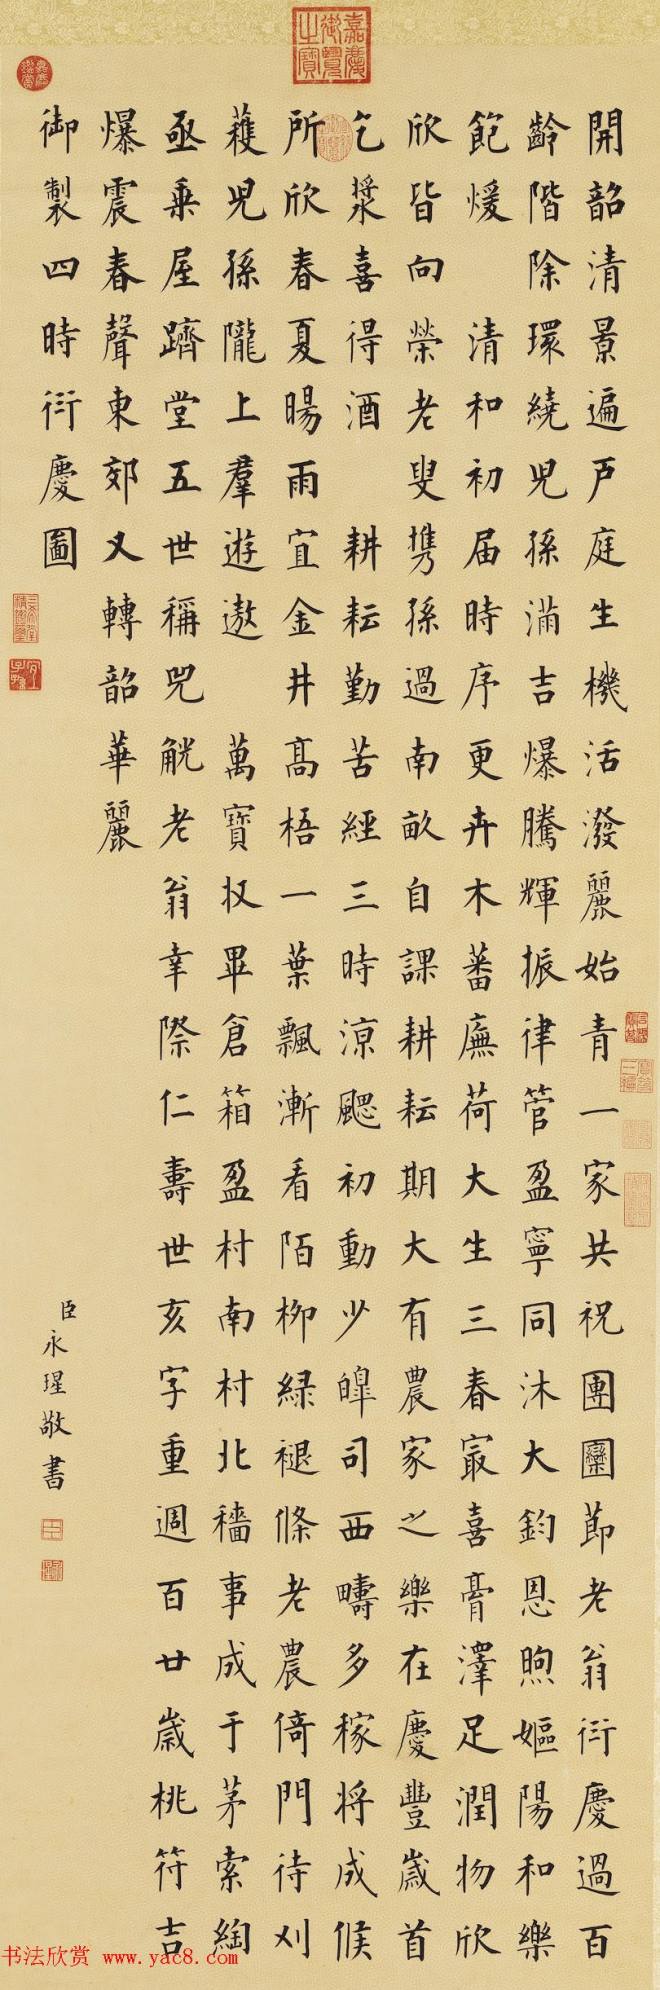 開韶清景遍戶庭生機活潑麗始青一家共祝團圞節老翁衍慶過百
齡階除環繞兒孫滿吉爆騰輝振律管盈寧同沐大鈞恩煦嫗陽和樂
飽煖 清和初届時序更卉木蕃廡荷大生三春㝡喜膏澤足潤物欣
欣皆向榮老叟携孫過南畝自課耕耘期大有農家之樂在慶豐歲首
乞漿喜得酒 耕耘勤苦經三時涼颸初動少皥司西疇多稼將成候
所欣春夏暘雨宜金井髙梧一葉飄漸看陌柳綠褪條老農倚門待刈
穫兒孫隴上羣遊遨 萬寶収畢倉箱盈村南村北穡事成于茅索綯
亟乗屋躋堂五世稱兕觥老翁幸際仁壽世亥字重週百廿歲桃符吉
爆震春聲東郊又轉韶華麗
御製四時衍慶圖
臣永瑆敬書
嘉慶御覽之寶
书法欣赏 www.yac8.com